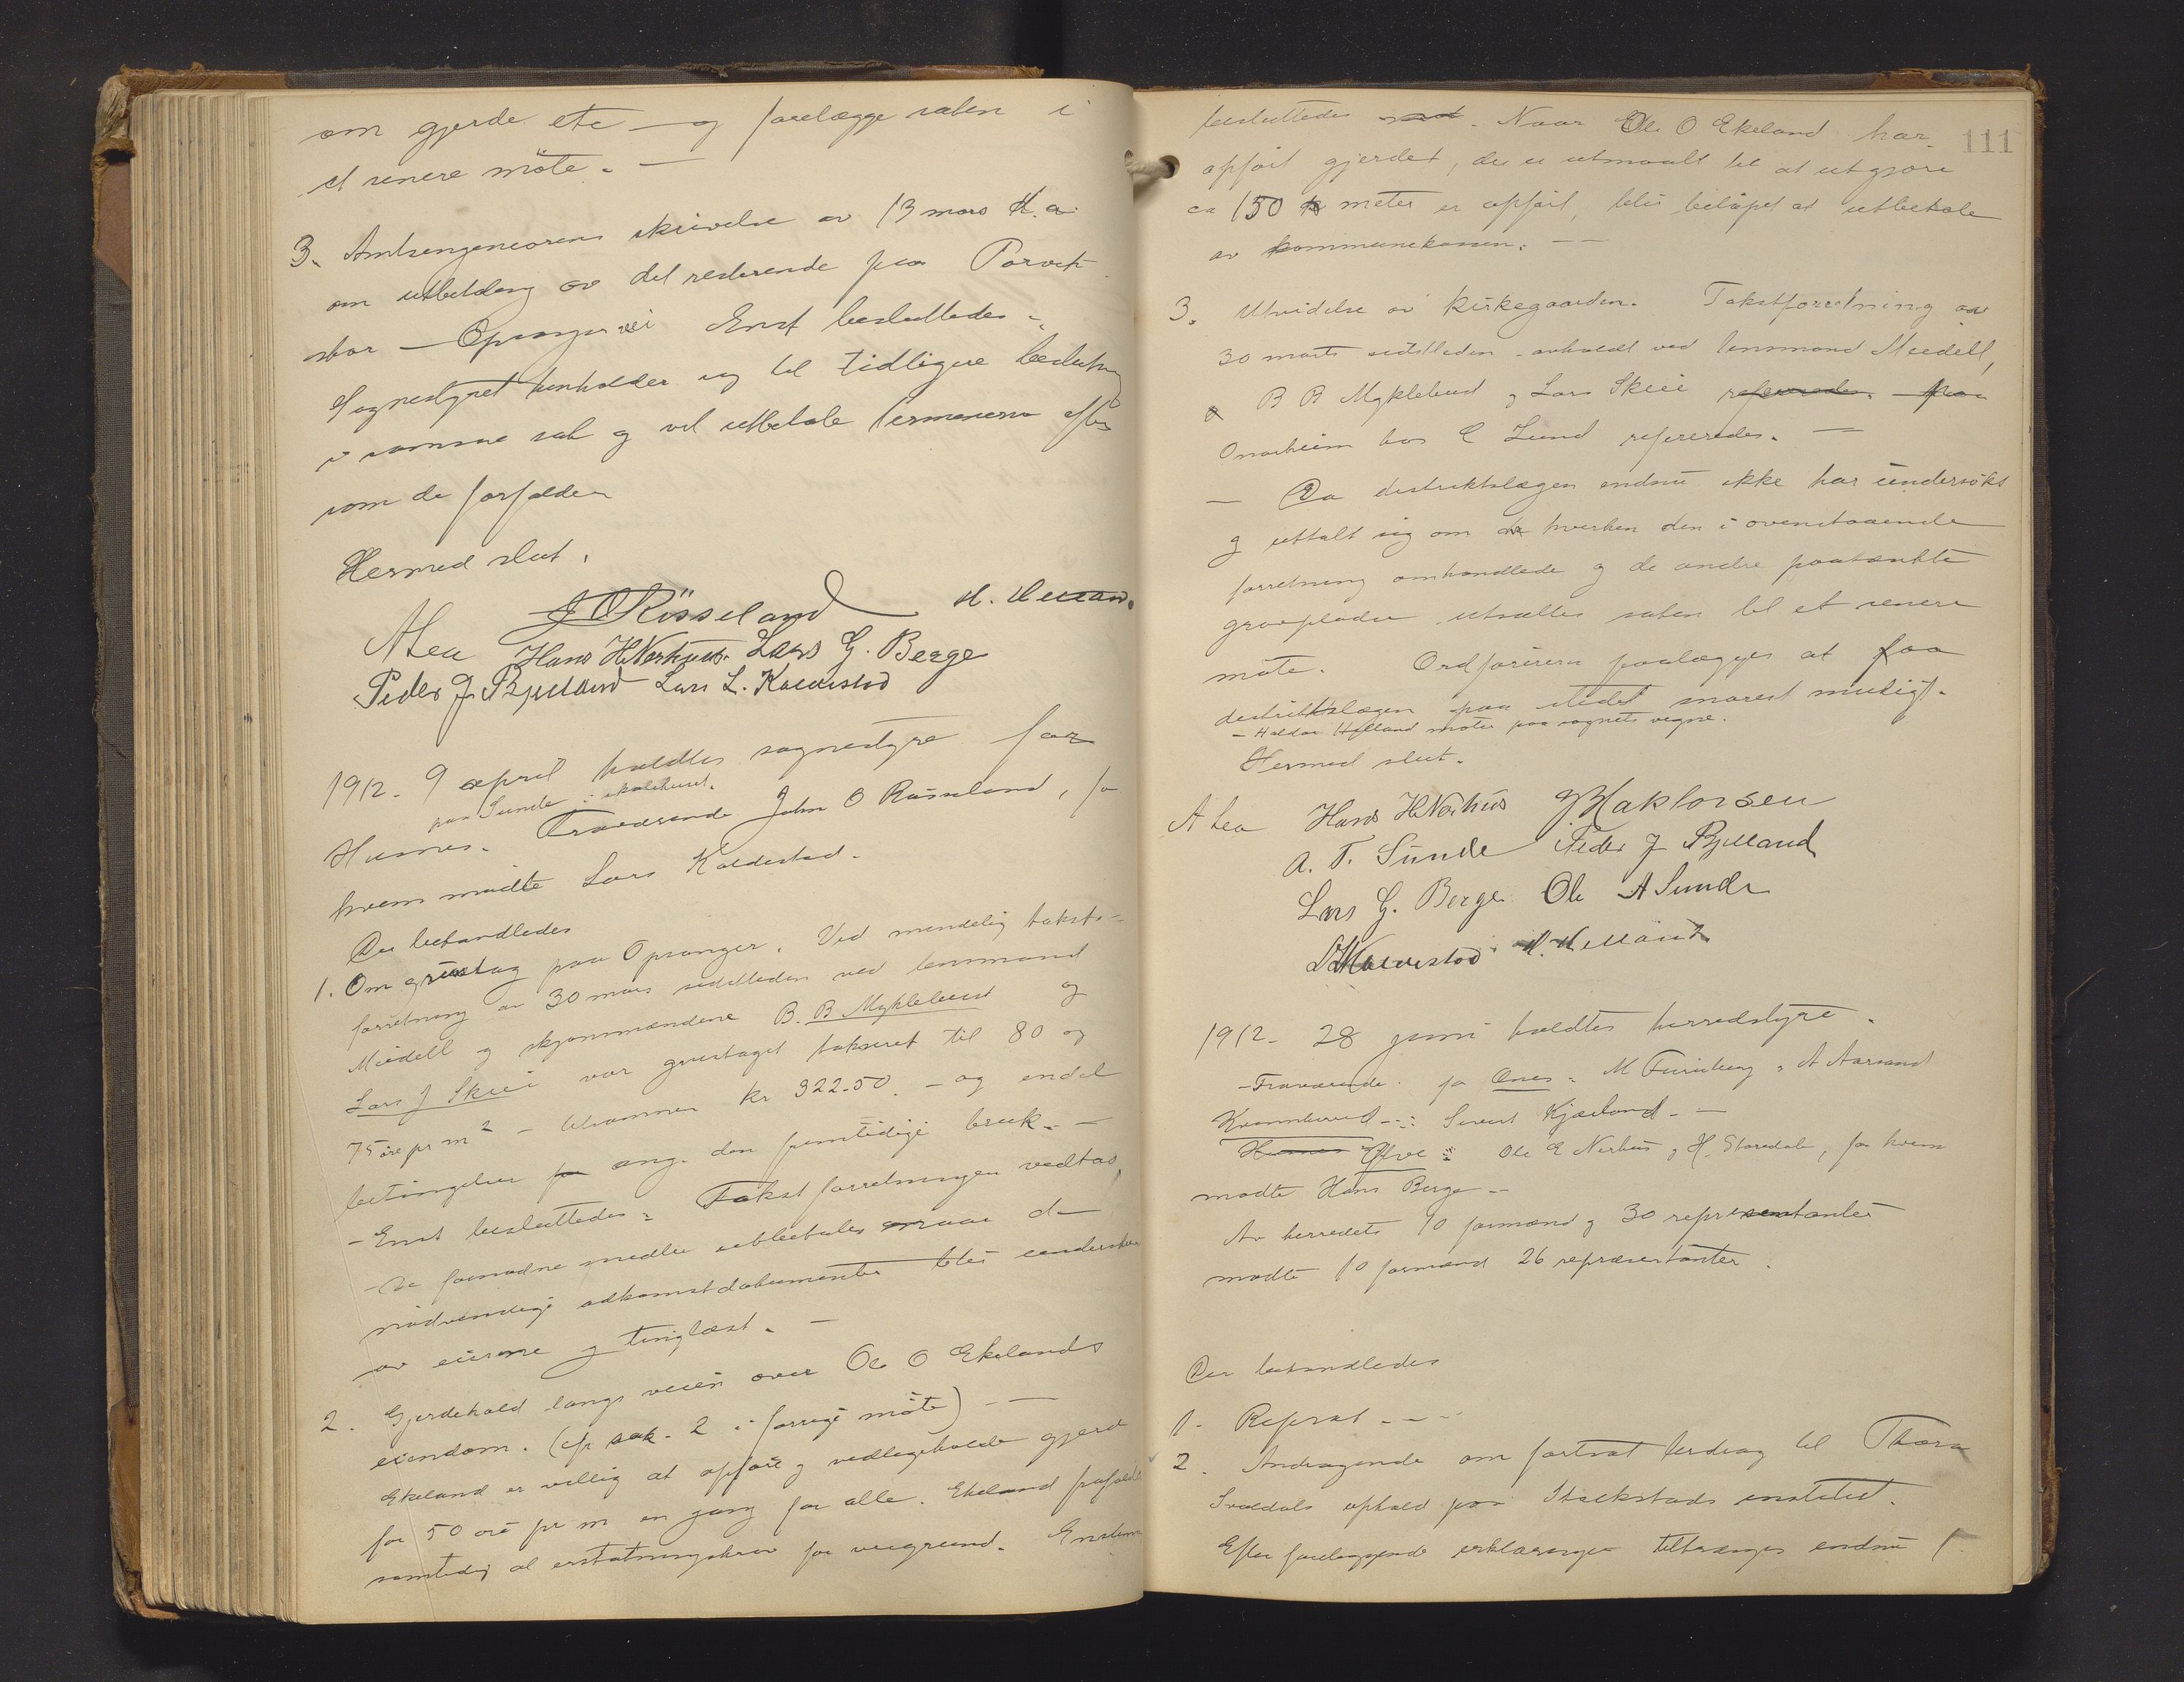 om gjerde etc — og forelægge saken i
et senere möte. —
3. Amtsingeniörens skrivelse av 13 mars d.a.
om utbetaling av det resterende paa Porvik
— Opsanger vei Enst besluttedes:
Sognestyret henholder sig til tidligere beslutning
i samme sak og vil utbetale terminerne efter
som de forfalder
Hermed slut.
J O Rösseland H. Helland.
A Lea Hans H. Nerhus. Lars G. Berge
Peder J. Bjelland Lars L. Kaldestad
1912. 9 april holdtes sognestyre for
paa Sunde i skolehuset.
Husnes. Fraværende John O Røsseland, for
hvem mødte Lars Kaldestad.
Der behandledes
1. Om grustag paa Opsanger. Ved mindelig takst-
forretning av 30 mars sidstleden ved lensmand
Meidell og skjønsmændene B. B Myklebust og
Lars J Skeie var grustaget takseret til 80 og
75 øre pr m² — tilsammen kr 322.50 — og endel
betingelser for ang. den fremtidige bruk. —
— Enst besluttedes: Takstforretningen vedtas,
— De fornødne midler utbetales naar de
nødvendige adkomstdokumenter blir underskrevet
av eierne og tinglæst. —
2. Gjerdehold langs veien over Ole O Ekelands
eiendom. (cfr sak. 2 i forrige möte) —
Ekeland er villig at opføre og vedlikeholde gjerde
for 50 øre pr m en gang for alle. Ekeland frafalder
samtidig al erstatningskrav for veigrund. Enstem
111
besluttedes . Naar Ole O Ekeland har
opført gjerdet, der er utmaalt til at utgjøre
ca 150 meter er opført, blir beløpet at utbetale
av kommunekassen. —
3. Utvidelse av kirkegaarden. Takstforretning av
30 marts sidstleden avholdt ved lensmand Meidell,
B B Myklebust og Lars Skeie refereredes. paa
Onarheim hos C Lund refereredes. —
— Da distriktslægen endnu ikke har undersøkt
og uttalt sig om hverken den i ovenstaaende
forretning omhandlede og de andre paatænkte
gravpladse utsættes saken til et senere
møte. Ordføreren paalægges at faa
distriktslægen paa stedet snarest muligt.
— Haldor Helland møter paa sognets vegne.
Hermed slut.
A Lea Hans H Nerhus J Haktorsen
A. T. Sunde Peder J Bjelland
Lars G. Berge Ole A Sunde
L L Kaldestad H. Helland
1912 — 28 juni holdtes herredstyre.
— Fraværende for Ænes: M Furuberg, A Aarsand
Kvinnherred —: Sivert Kjærland —
Husnes Ølve: Ole E Nerhus og H. Storedale, for hvem
mødte Hans Berge —
Av herredets 10 formænd og 30 repræsentanter
mødte 10 formænd 26 repræsentanter.
Der behandledes
1. Referat — — —
2. Andragende om fortsat bidrag til Thora
Svaldals ophold paa Stakstads institut.
Efter foreliggende erklæringer tiltrænges endnu 1